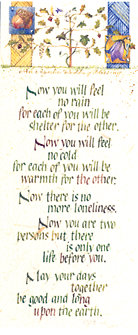 Now you will feel
no rain
for each of you will be
shelter for the other.
Now you will feel
no cold
for each of you will be
warmth for the other.
Now there is no
more loneliness.
Now you are two
persons but there
is only one
life before you.
May your days
together
be good and long
upon the earth.